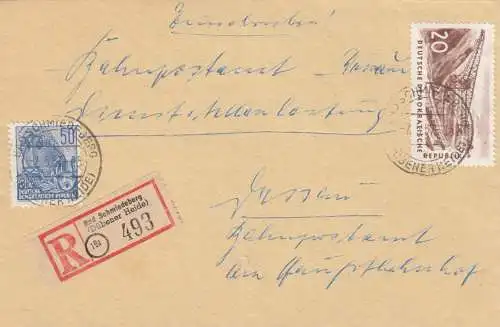 Einschreiben!
Bahnpostamt
Dienststellenleitung
Dessau
Bahnpostamt
am Hauptbahnhof
20
DEUTSCHE DEMOKRATISCHE
REPUBLIK
50
DEUTSCHE
DEMOKRATISCHE REPUBLIK
SCHMIEDEBERG
R
Bad Schmiedeberg
(Dübener Heide)
(19a)
493